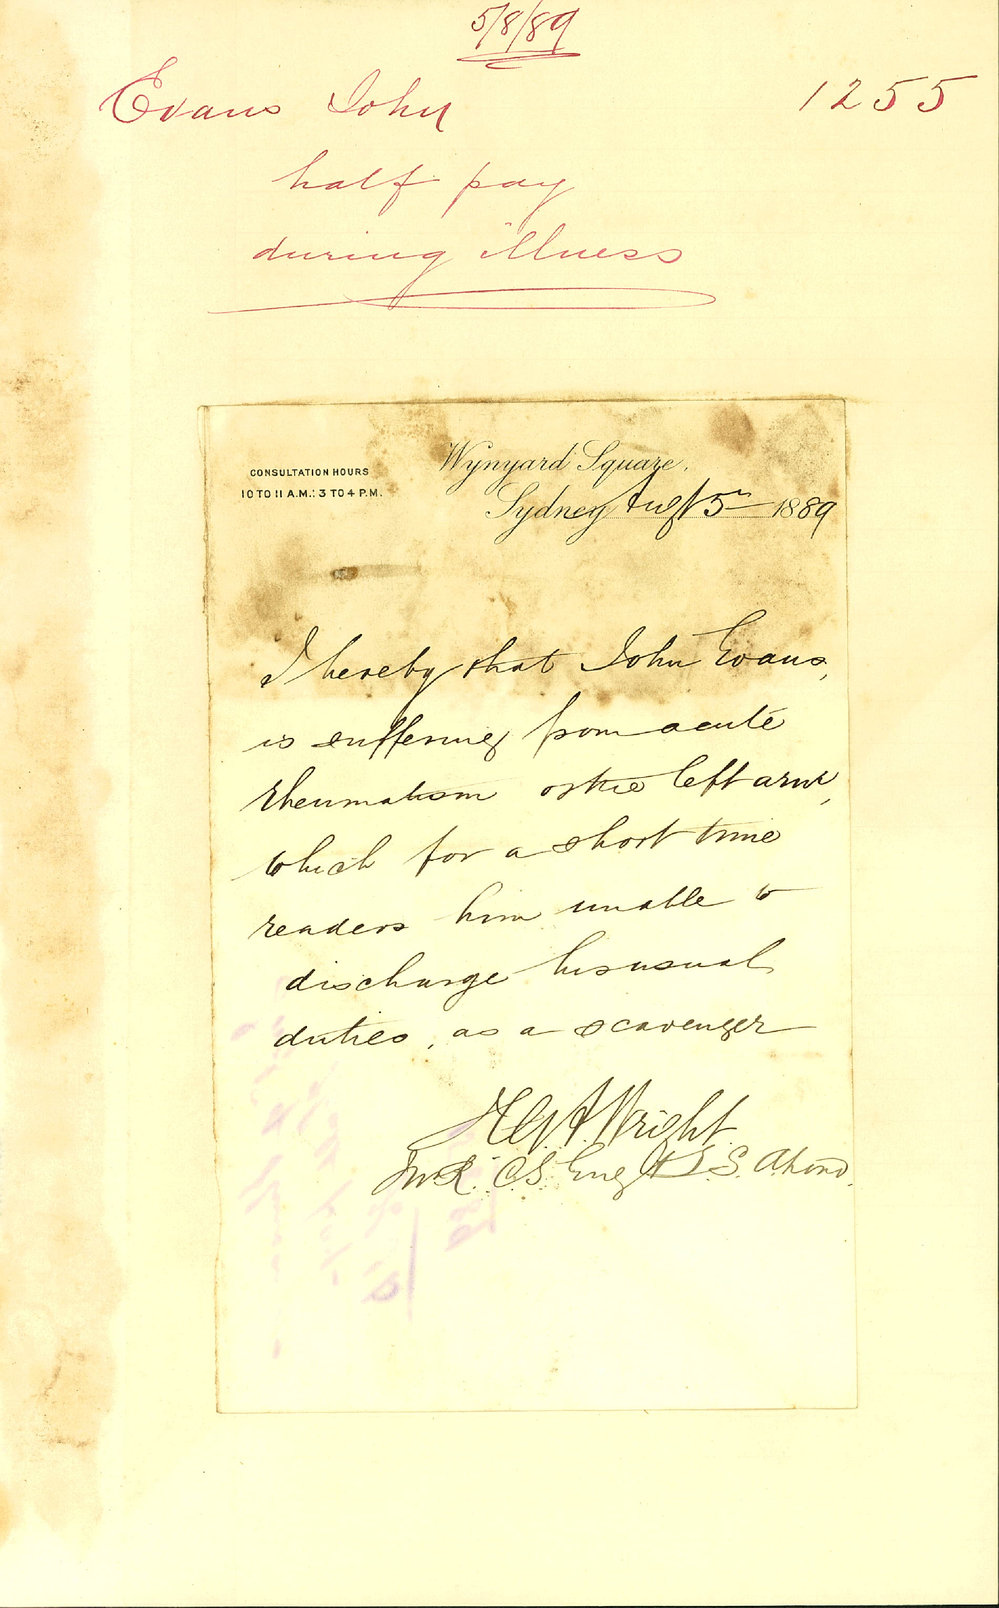 5/8/89
Evans John 1255
half pay
during illness
CONSULTATION HOURS
10 TO 11 A.M.: 3 TO 4 P.M.
Wynyard Square,
Sydney Augt 5th 1889
I hereby that John Evans,
is suffering from acute
rheumatism of the left arm,
which for a short time
renders him unable to
discharge his usual
duties, as a scavenger
H.G.A. Wright.
M.R.C.S. Eng L.S.